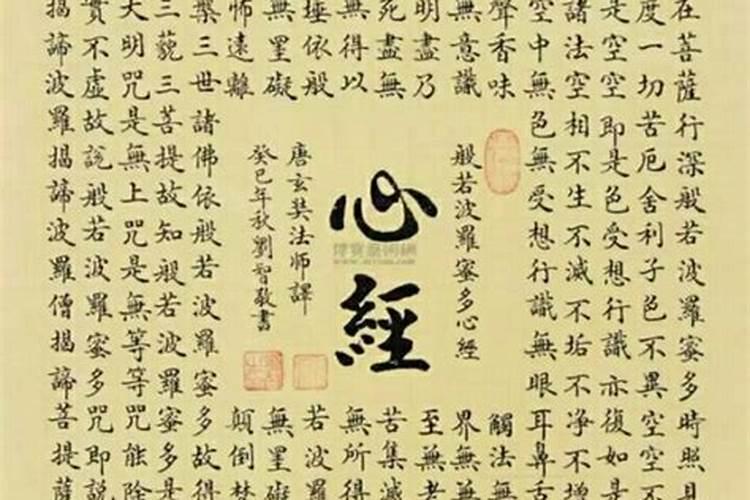 在菩薩行深般若波羅蜜多時照見
度一切苦厄舍利子色不異空空不
是空空即是色受想行識亦復如是
諸法空相不生不滅不垢不淨不增
空中無色無受想行識無眼耳鼻舌
聲香味
觸法無
無意識
界無無
明盡乃
至無老
死盡無
苦集滅
無得以
無所得
埵依般
若波羅
無罣礙
無罣礙
遠離
顛倒
般若波羅蜜多心經
心經
唐玄奘法師譯
癸巳年秋劉智敬書
槃三世諸佛依般若波羅蜜多故得
三藐三菩提故知般若波羅蜜多是
大明咒是無上咒是無等等咒能除
實不虛故說般若波羅蜜多咒即說
揭諦波羅揭諦波羅僧揭諦菩提薩